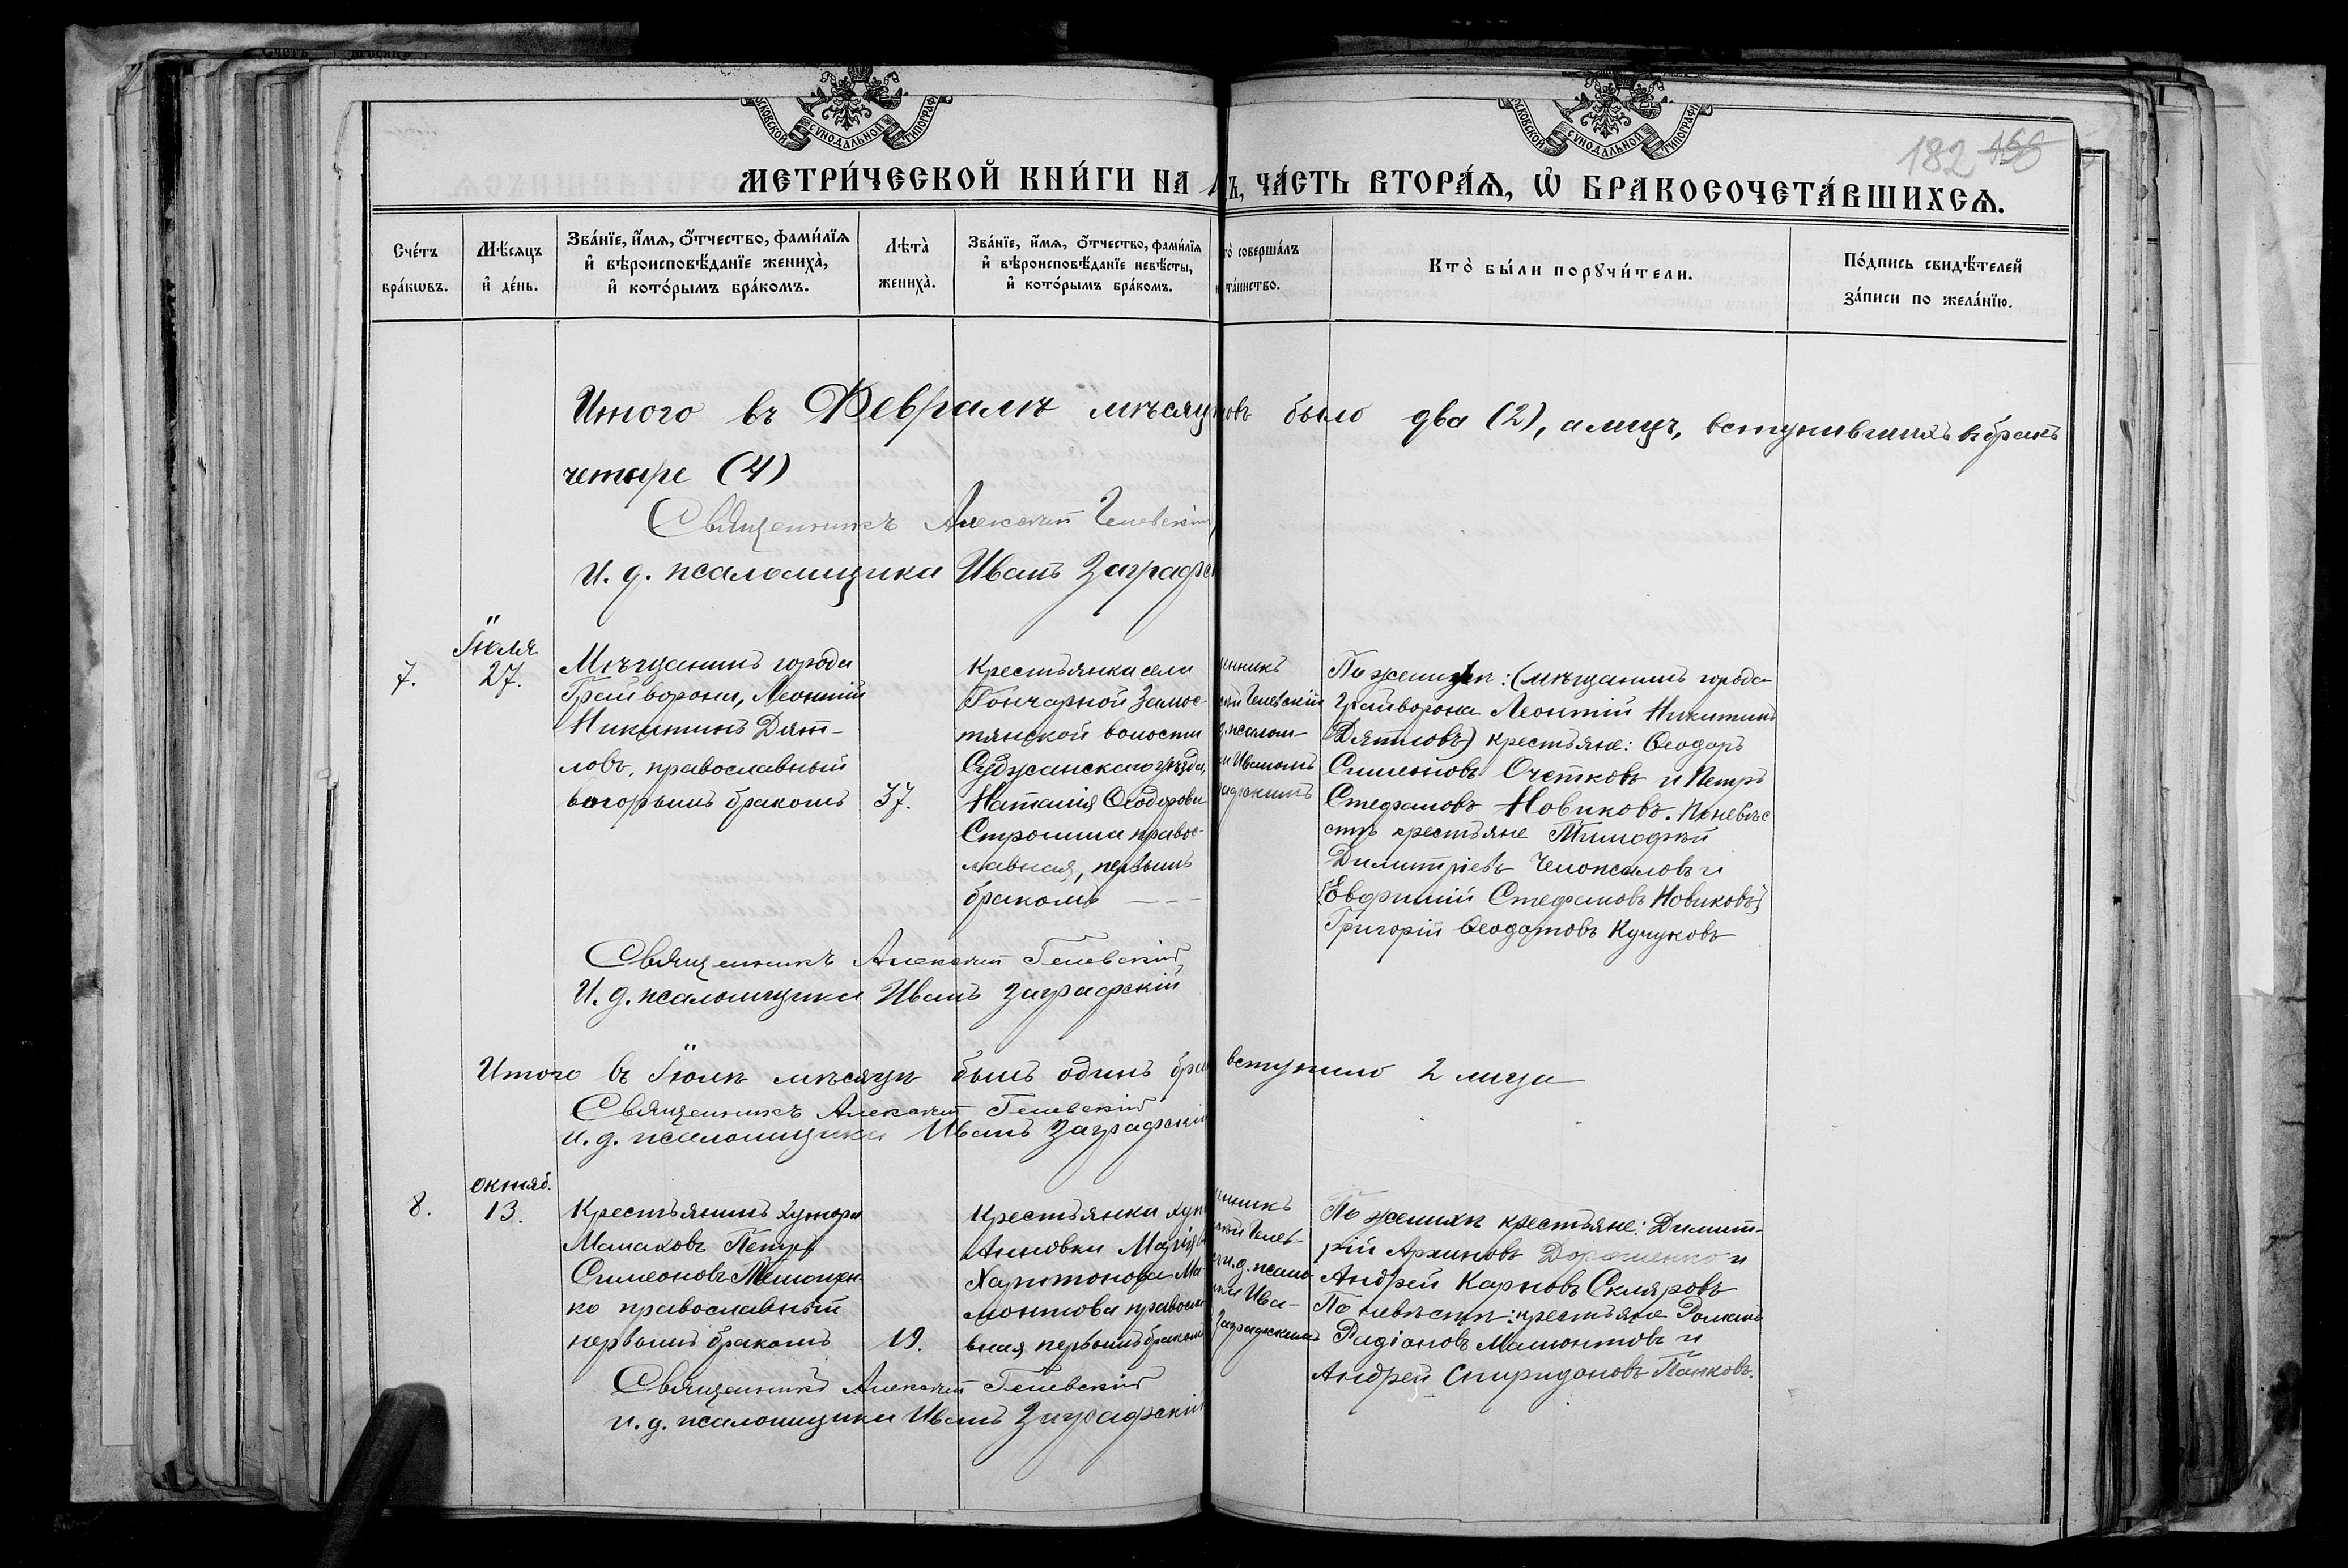 МОСКОВСКОЙ СУНОДАЛЬНОЙ ТИПОГРАФ
ОСКОВСКОЙ СУНОДАЛЬНОЙ ТИПОГРАФІ
182 166
МЕТРИ́ЧЕСКОЙ КНИ́ГИ НА
Ъ, ЧА́СТЬ ВТОРА́Я, Ѡ҆ БРАКОСОЧЕТА́ВШИХСЯ.
Сче́тъ бра́кѡвъ.
Мѣ́сяцъ и҆ де́нь.
Зва́нїе, и҆́мя, ѻ҆́тчество, фами́лїя и҆ вѣроисповѣ́данїе жениха̀, и҆ кото́рымъ бра́комъ.
Лѣта̀ жениха̀.
Зва́нїе, и҆́мя, ѻ҆́тчество, фами́лїя и҆ вѣроисповѣ́данїе невѣ́сты, и҆ кото́рымъ бра́комъ.
то̀ соверша́лъ та́инство.
Кто̀ бы́ли порꙋчи́тели.
По́дпись свидѣ́телей за́писи по жела́нїю.
Итого въ Февралѣ мѣсяц
ковъ было два (2), а лицъ, вступившихъ въ бракъ
четыре (4)
Священникъ Алексій Гелевскій
И. д. псаломщика Иванъ Заграфс
7.
Іюля
27.
Мѣщанинъ города
Грайворона, Леонтій
Никитинъ Дят-
ловъ, православный
вторымъ бракомъ
37.
Крестьянка села
Гончарной Замос-
тянской волости
Суджанскаго уѣзда,
Наталія Ѳеодорова
Строгина правос-
лавная, первымъ
бракомъ
енникъ
сій Гелевскій
д. псалом-
и Иваномъ
графскимъ
По женихѣ: (мѣщанинъ города
Грайворона Леонтій Никитинъ
Дятловъ) крестьяне: Ѳеодоръ
Симеоновъ Очетковъ и Петръ
Стефановъ Новиковъ. По невѣс
стѣ крестьяне Тимофей
Димитріевъ и
(Евфимій Стефановъ Новиковъ)
Григорій Ѳеодотовъ Кучуковъ
Священникъ Алексій Гелевскій
И. д. псаломщика Иванъ Заграфскій
Итого въ Іюлѣ мѣсяцѣ былъ одинъ бра
вступило 2 лица
Священникъ Алексій Гелевскій
и. д. псаломщика Иванъ Заграфскій
8.
октяб.
13.
Крестьянинъ хутора
Малаховъ Петръ
Симеоновъ
ко православный
первымъ бракомъ
19.
Крестьянка хут
Анновки Марія
Харитонова Ма-
монтова правосла
вная первымъ бракомъ
енникъ
сій Гелев-
и. д. псало
ка Ива-
Заграфскимъ
По женихѣ крестьяне: Димит-
рій Архиповъ Дорошенко и
Андрей Карповъ Скляровъ
По невѣстѣ: крестьяне Романъ
Радіоновъ Мамонтовъ и
Андрей Спиридоновъ Панковъ.
Священникъ Алексій Гелевскій
и. д. псаломщика Иванъ Заграфскій